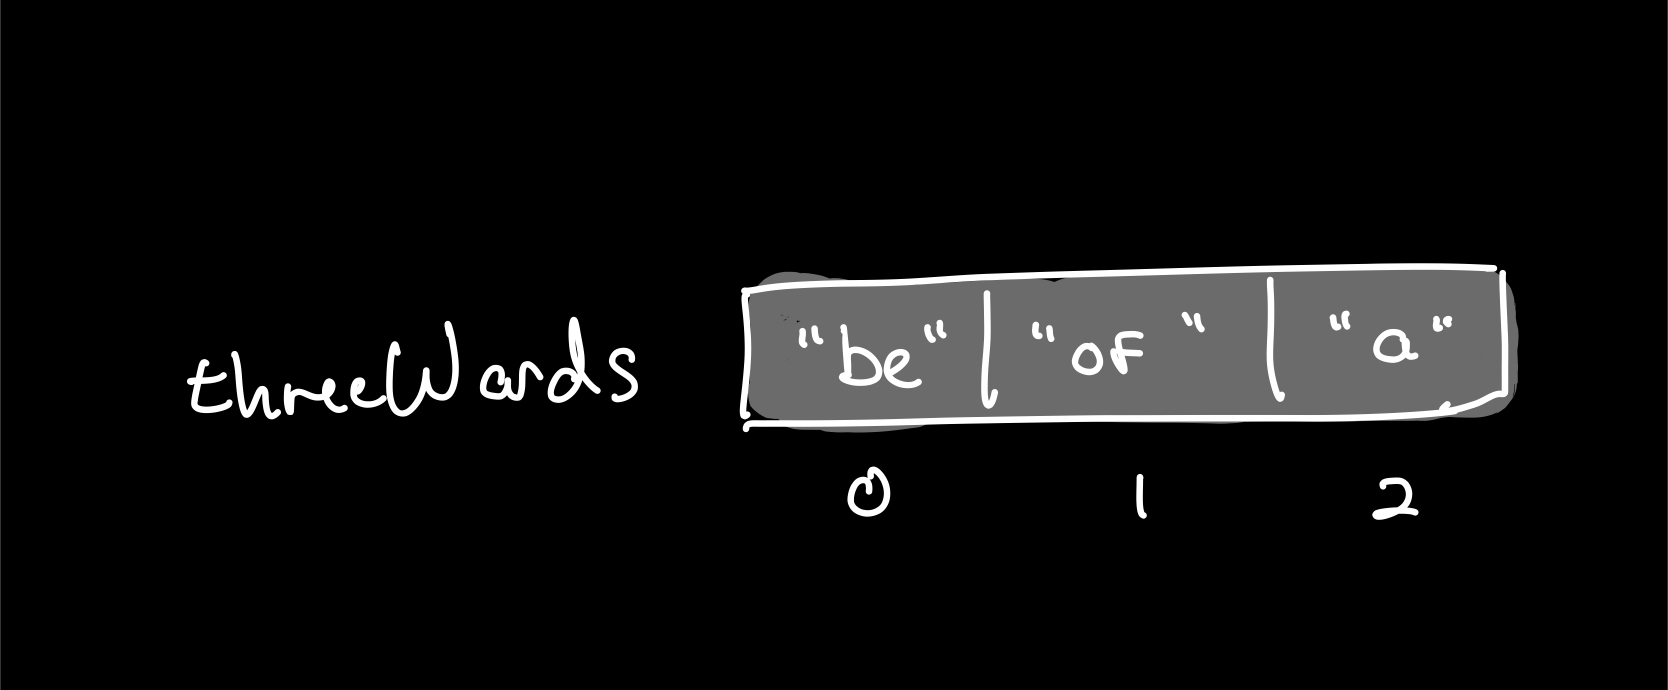 threeWords "be" "of" "a"
0 1 2